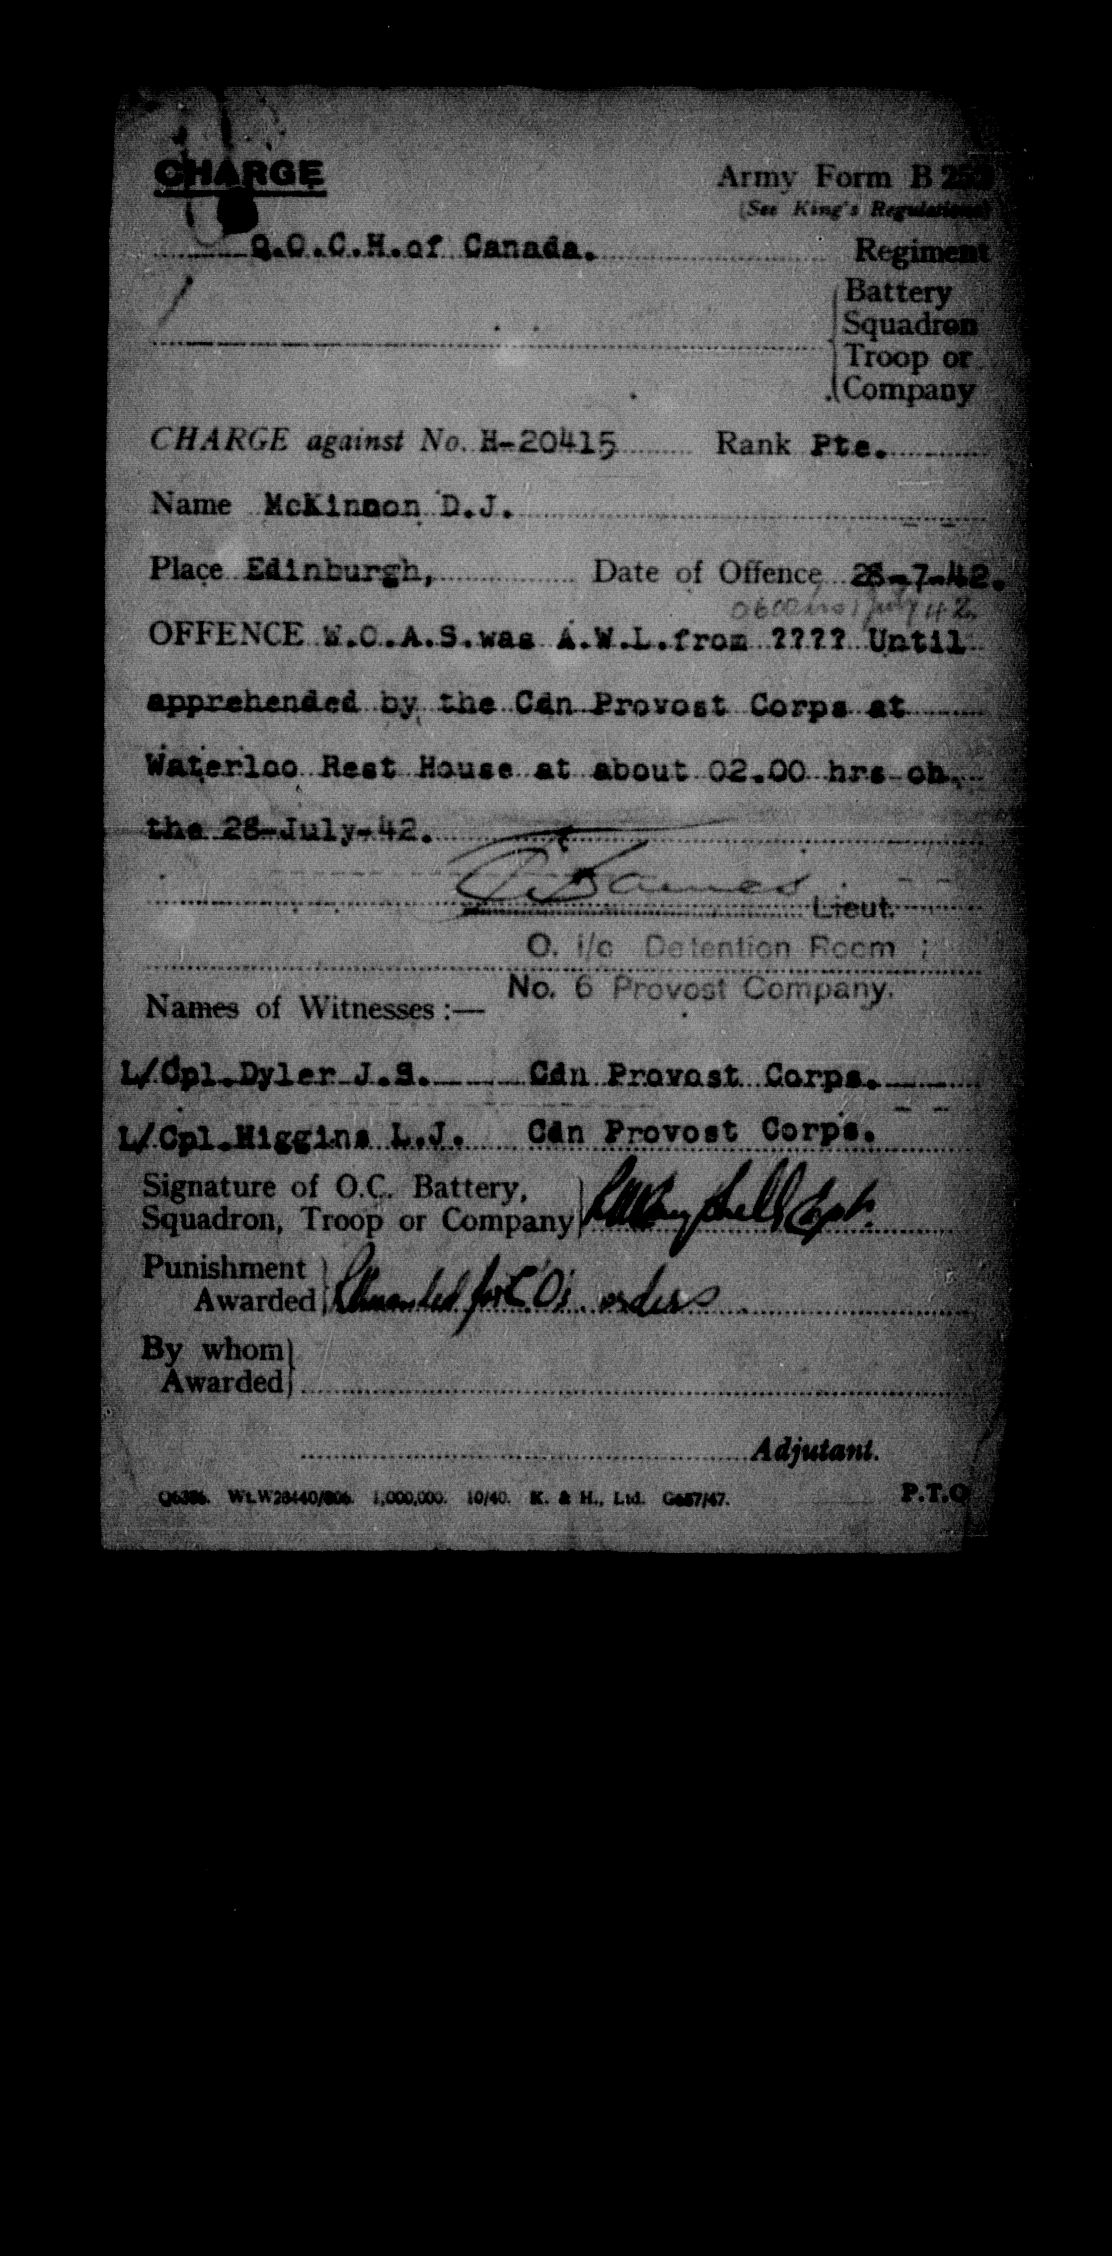 CHARGE
Army Form B 252
(See King's Regulations)
Q.O.C.H.of Canada. Regiment
Battery
Squadron
Troop or
Company
CHARGE against No. H-20415 Rank Pte.
Name McKinnon D.J.
Place Edinburgh, Date of Offence 28-7-42.
0600 hrs 1 July 42
OFFENCE W.O.A.S.was A.W.L.from ???? Until
apprehended by the Cdn Provost Corps at
Waterloo Rest House at about 02.00 hrs on
the 28-July-42.
Lieut.
O. i/c Detention Room
No. 6 Provost Company.
Names of Witnesses :—
L/Cpl.Dyler J.S. Cdn Provost Corps.
L/Cpl.Higgins L.J. Cdn Provost Corps.
Signature of O.C. Battery,
Squadron, Troop or Company Capt.
Punishment
Awarded Remanded for C.O's. orders
By whom
Awarded
Adjutant.
Wt.W28440/806. 1,000,000. 10/40. K. & H., Ltd. G657/47.
P.T.O